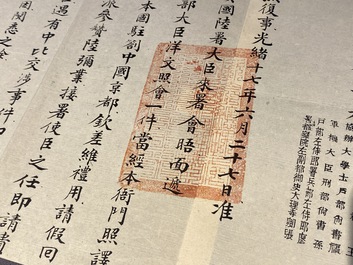 辦大學士戶部尚書
軍機大臣刑部尚書孫
戶部左侍郎署兵部左侍郎廖
署都察院左副都御史大理寺卿張
復事光緒十七年六月二十七日准
國陸署大臣來署會晤面遞
部大臣洋文照會一件當經本衙門照譯
本國駐劄中國京都欽差維禮用請假回
派參贊陸彌業接署使臣之任即請貴
遇有中比交涉事件
悉之